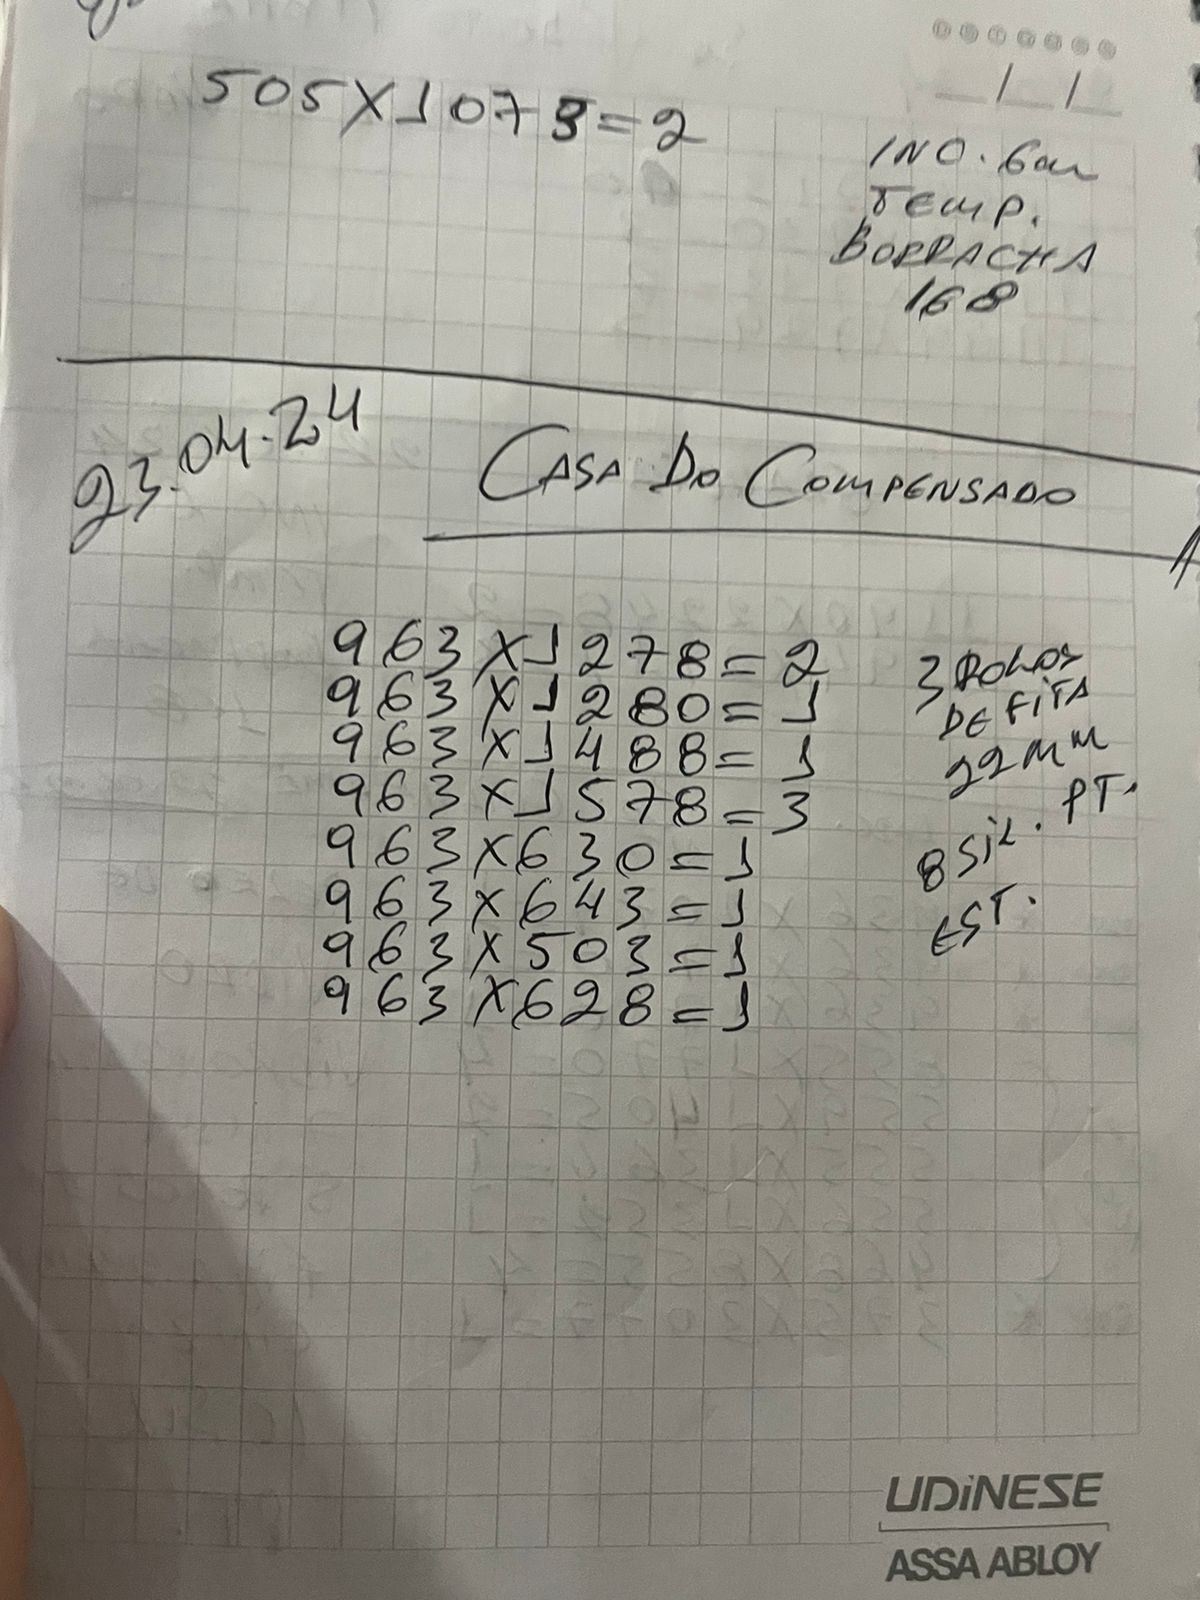 505X1073=2
INC. 6mm
TEMP.
BORRACHA
168
23.04.24
CASA DO COMPENSADO
963X1278=2
963X1280=1
963X1488=1
963X1578=3
963X630=1
963X643=1
963X503=1
963X628=1
3 ROLOS
DE FITA
22MM
PT.
8 SIL.
EST.
UDiNESE
ASSA ABLOY